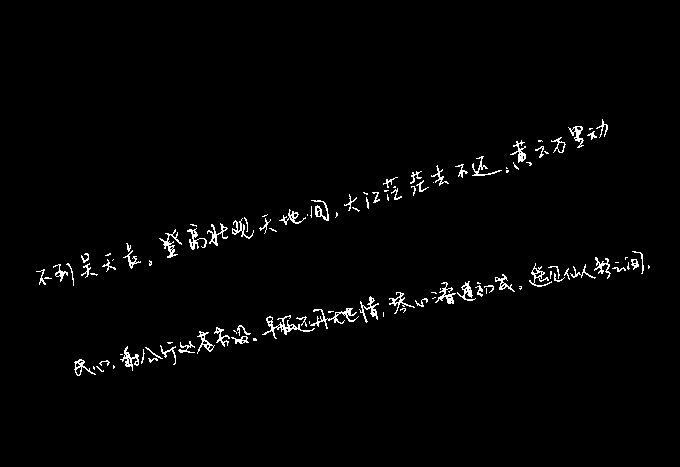 不到吴天长。登高壮观天地间,大江茫茫去不还。黄云万里动
我心,谢公行处苍苔没。早服还丹无世情,琴心三叠道初成。遥见仙人彩云间,